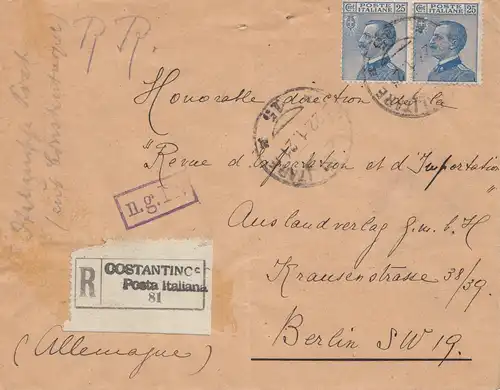 Cmi 25 POSTE ITALIANE
POSTE ITALIANE Cmi 25
R R.
Honorable direction de la
"Revue d'Exportation et d'Importation"
22.1.21
MILITARE
15
n.g.
Auslandverlag G. m. b. H
Krausenstrasse 38/39.
Berlin SW 19.
R
COSTANTINO
Posta Italiana
81
(Allemagne)